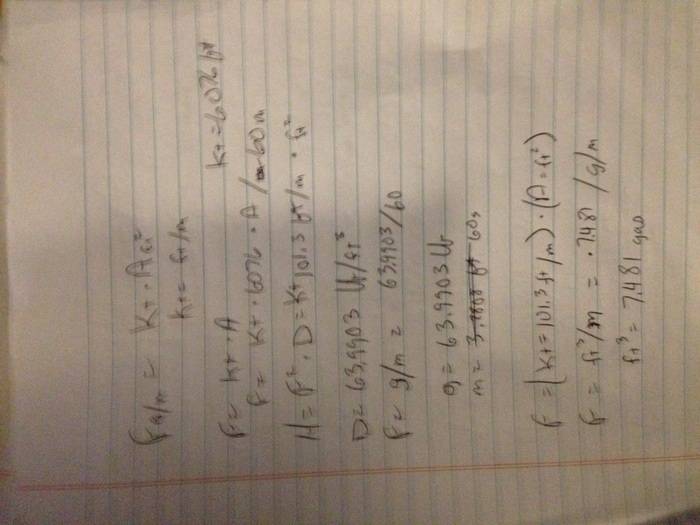 F g/m = Kt · A ft²
Kt = ft/m
F = Kt · A Kt = 6076 ft
F = Kt · 6076 · A / 60 m
H = F² · D = Kt 101.3 ft/m · ft²
D = 63.9903 lb/ft³
F = g/m = 63.9903/60
g = 63.9903 lb
m = 60s
F = (Kt = 101.3 ft/m) · (A = ft²)
F = ft³/m = .7481 / g/m
ft³ = 7.481 gal